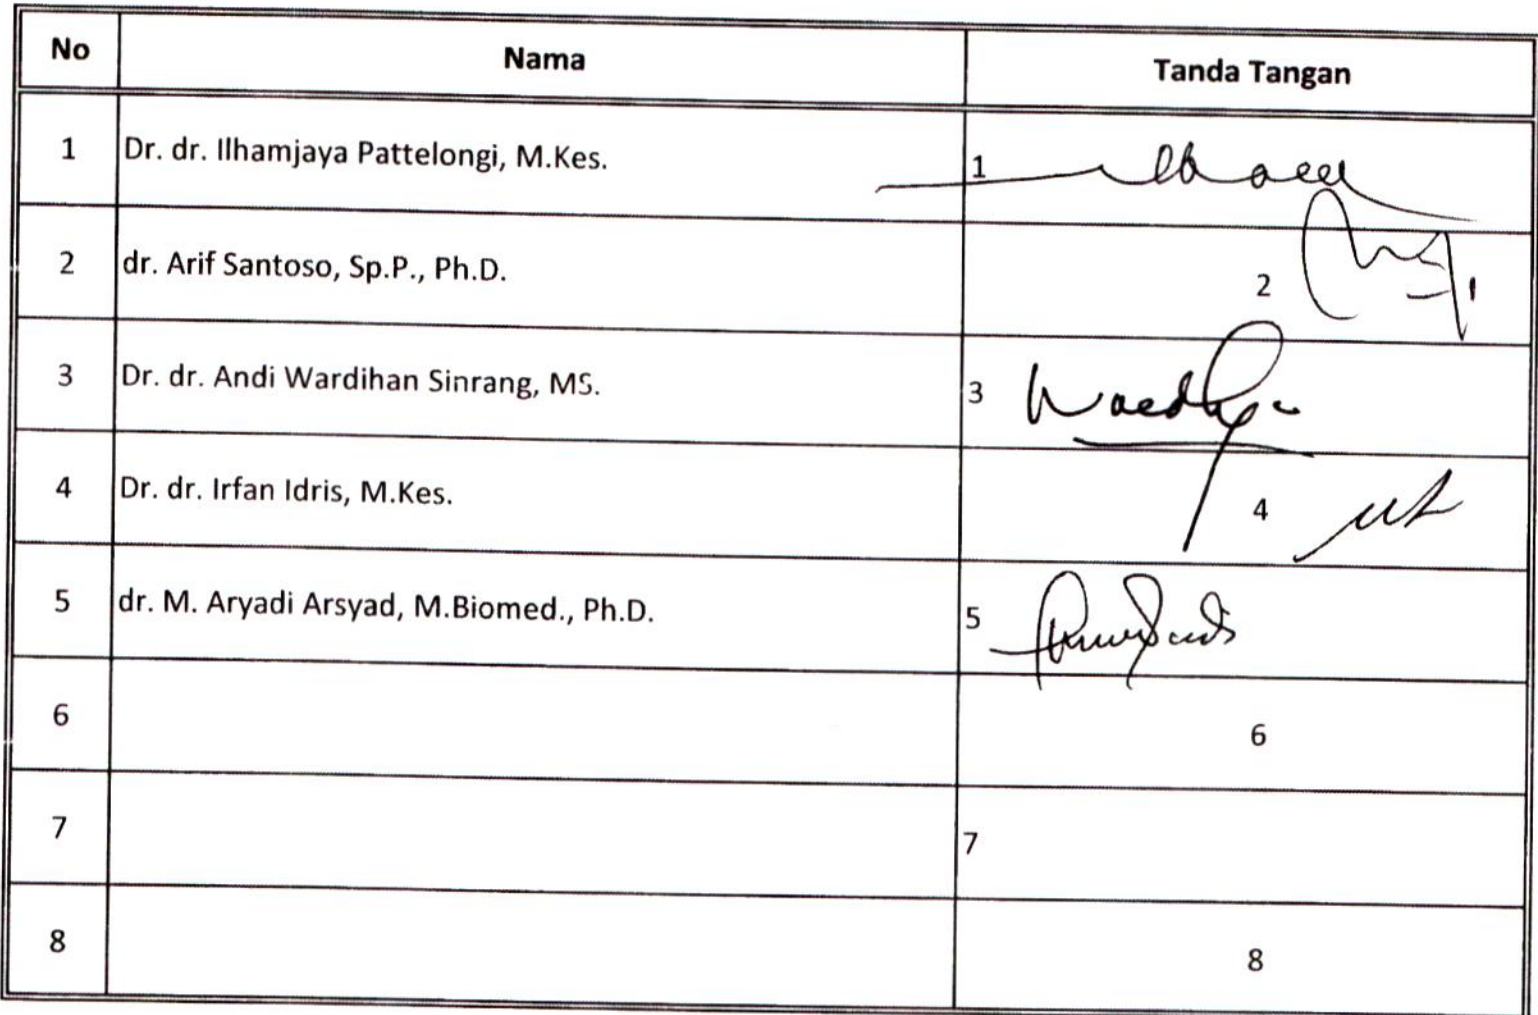 No Nama Tanda Tangan
1 Dr. dr. Ilhamjaya Pattelongi, M.Kes. 1
2 dr. Arif Santoso, Sp.P., Ph.D. 2
3 Dr. dr. Andi Wardihan Sinrang, MS. 3
4 Dr. dr. Irfan Idris, M.Kes. 4
5 dr. M. Aryadi Arsyad, M.Biomed., Ph.D. 5
6 6
7 7
8 8